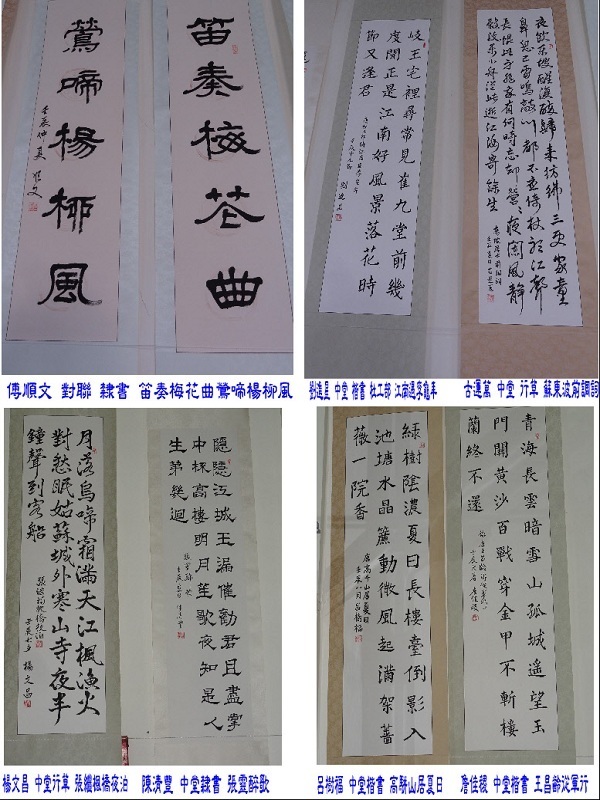 笛奏梅花曲
鶯啼楊柳風
壬辰仲夏
傅順文 對聯 隸書 笛奏梅花曲鶯啼楊柳風
夜飲東坡醒復醉歸來彷彿三更家童
鼻息已雷鳴敲門都不應倚杖聽江聲
長恨此身非我有何時忘却營營夜闌風靜
縠紋平小舟從此逝江海寄餘生
岐王宅裡尋常見崔九堂前幾
度聞正是江南好風景落花時
節又逢君
劉進星 中堂 楷書 杜工部 江南逢李龜年
古運萬 中堂 行草 蘇東坡前調詞
隱隱江城玉漏催勸君且盡掌
中杯高樓明月笙歌夜知是人
生第幾迴
月落烏啼霜滿天江楓漁火
對愁眠姑蘇城外寒山寺夜半
鐘聲到客船
張繼楓橋夜泊
壬辰七夕 楊文昌
楊文昌 中堂行草 張繼楓橋夜泊
陳濟豐 中堂隸書 張靈醉歌
青海長雲暗雪山孤城遙望玉
門關黃沙百戰穿金甲不斬樓
蘭終不還
綠樹陰濃夏日長樓臺倒影入
池塘水晶簾動微風起滿架薔
薇一院香
壬辰八月呂樹福
呂樹福 中堂楷書 高駢山居夏日
詹佳稷 中堂楷書 王昌齡從軍行